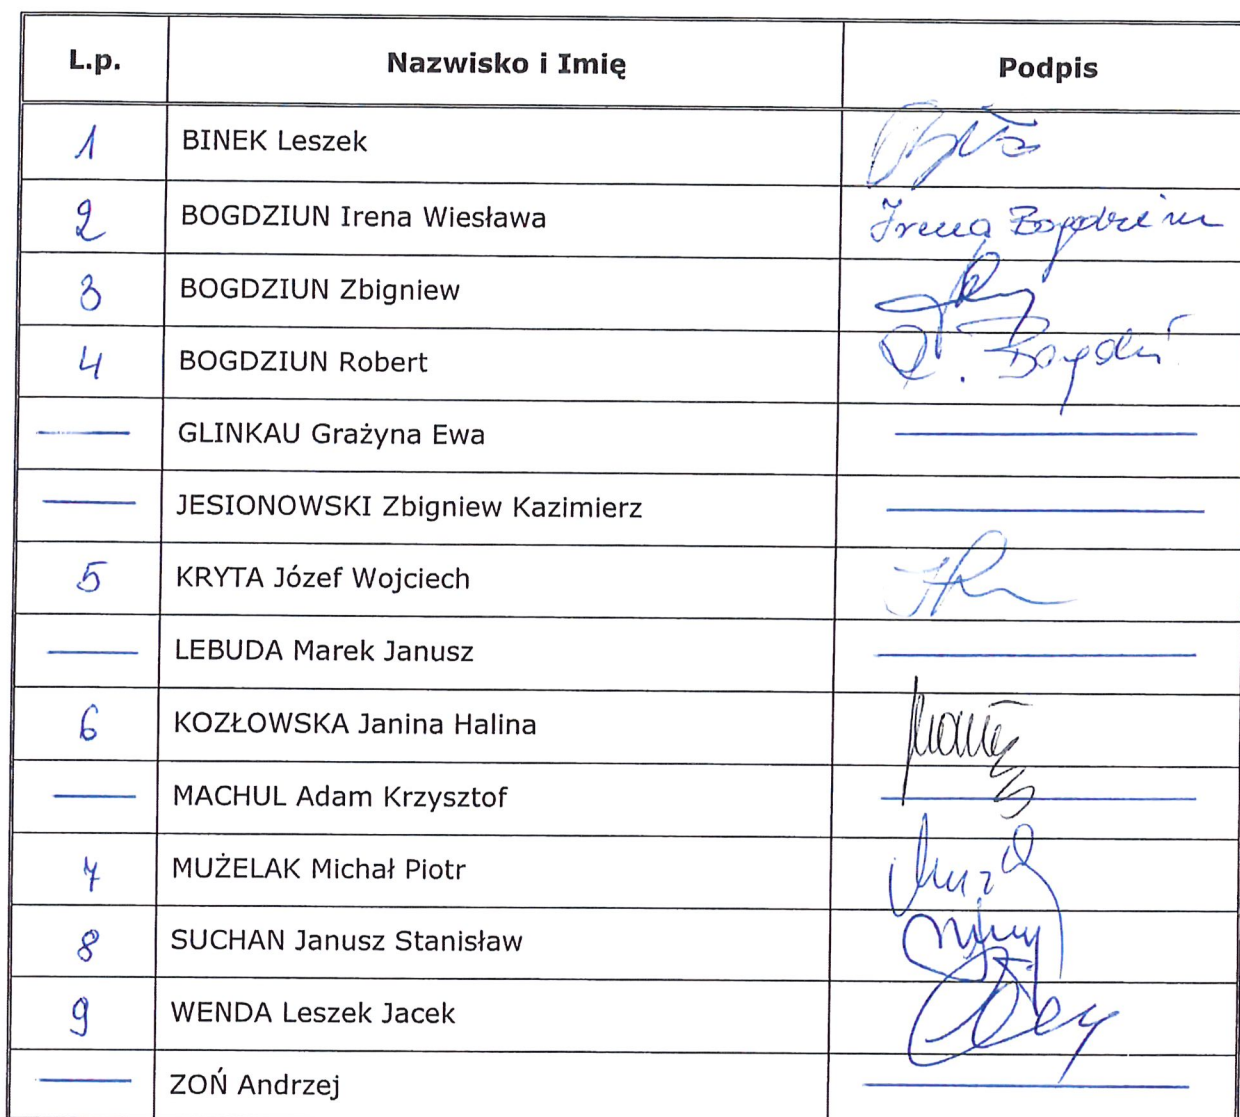 L.p. Nazwisko i Imię Podpis
1 BINEK Leszek
2 BOGDZIUN Irena Wiesława Irena Bogdziun
3 BOGDZIUN Zbigniew
4 BOGDZIUN Robert
GLINKAU Grażyna Ewa
JESIONOWSKI Zbigniew Kazimierz
5 KRYTA Józef Wojciech
LEBUDA Marek Janusz
6 KOZŁOWSKA Janina Halina
MACHUL Adam Krzysztof
7 MUŻELAK Michał Piotr
8 SUCHAN Janusz Stanisław
9 WENDA Leszek Jacek
ZOŃ Andrzej